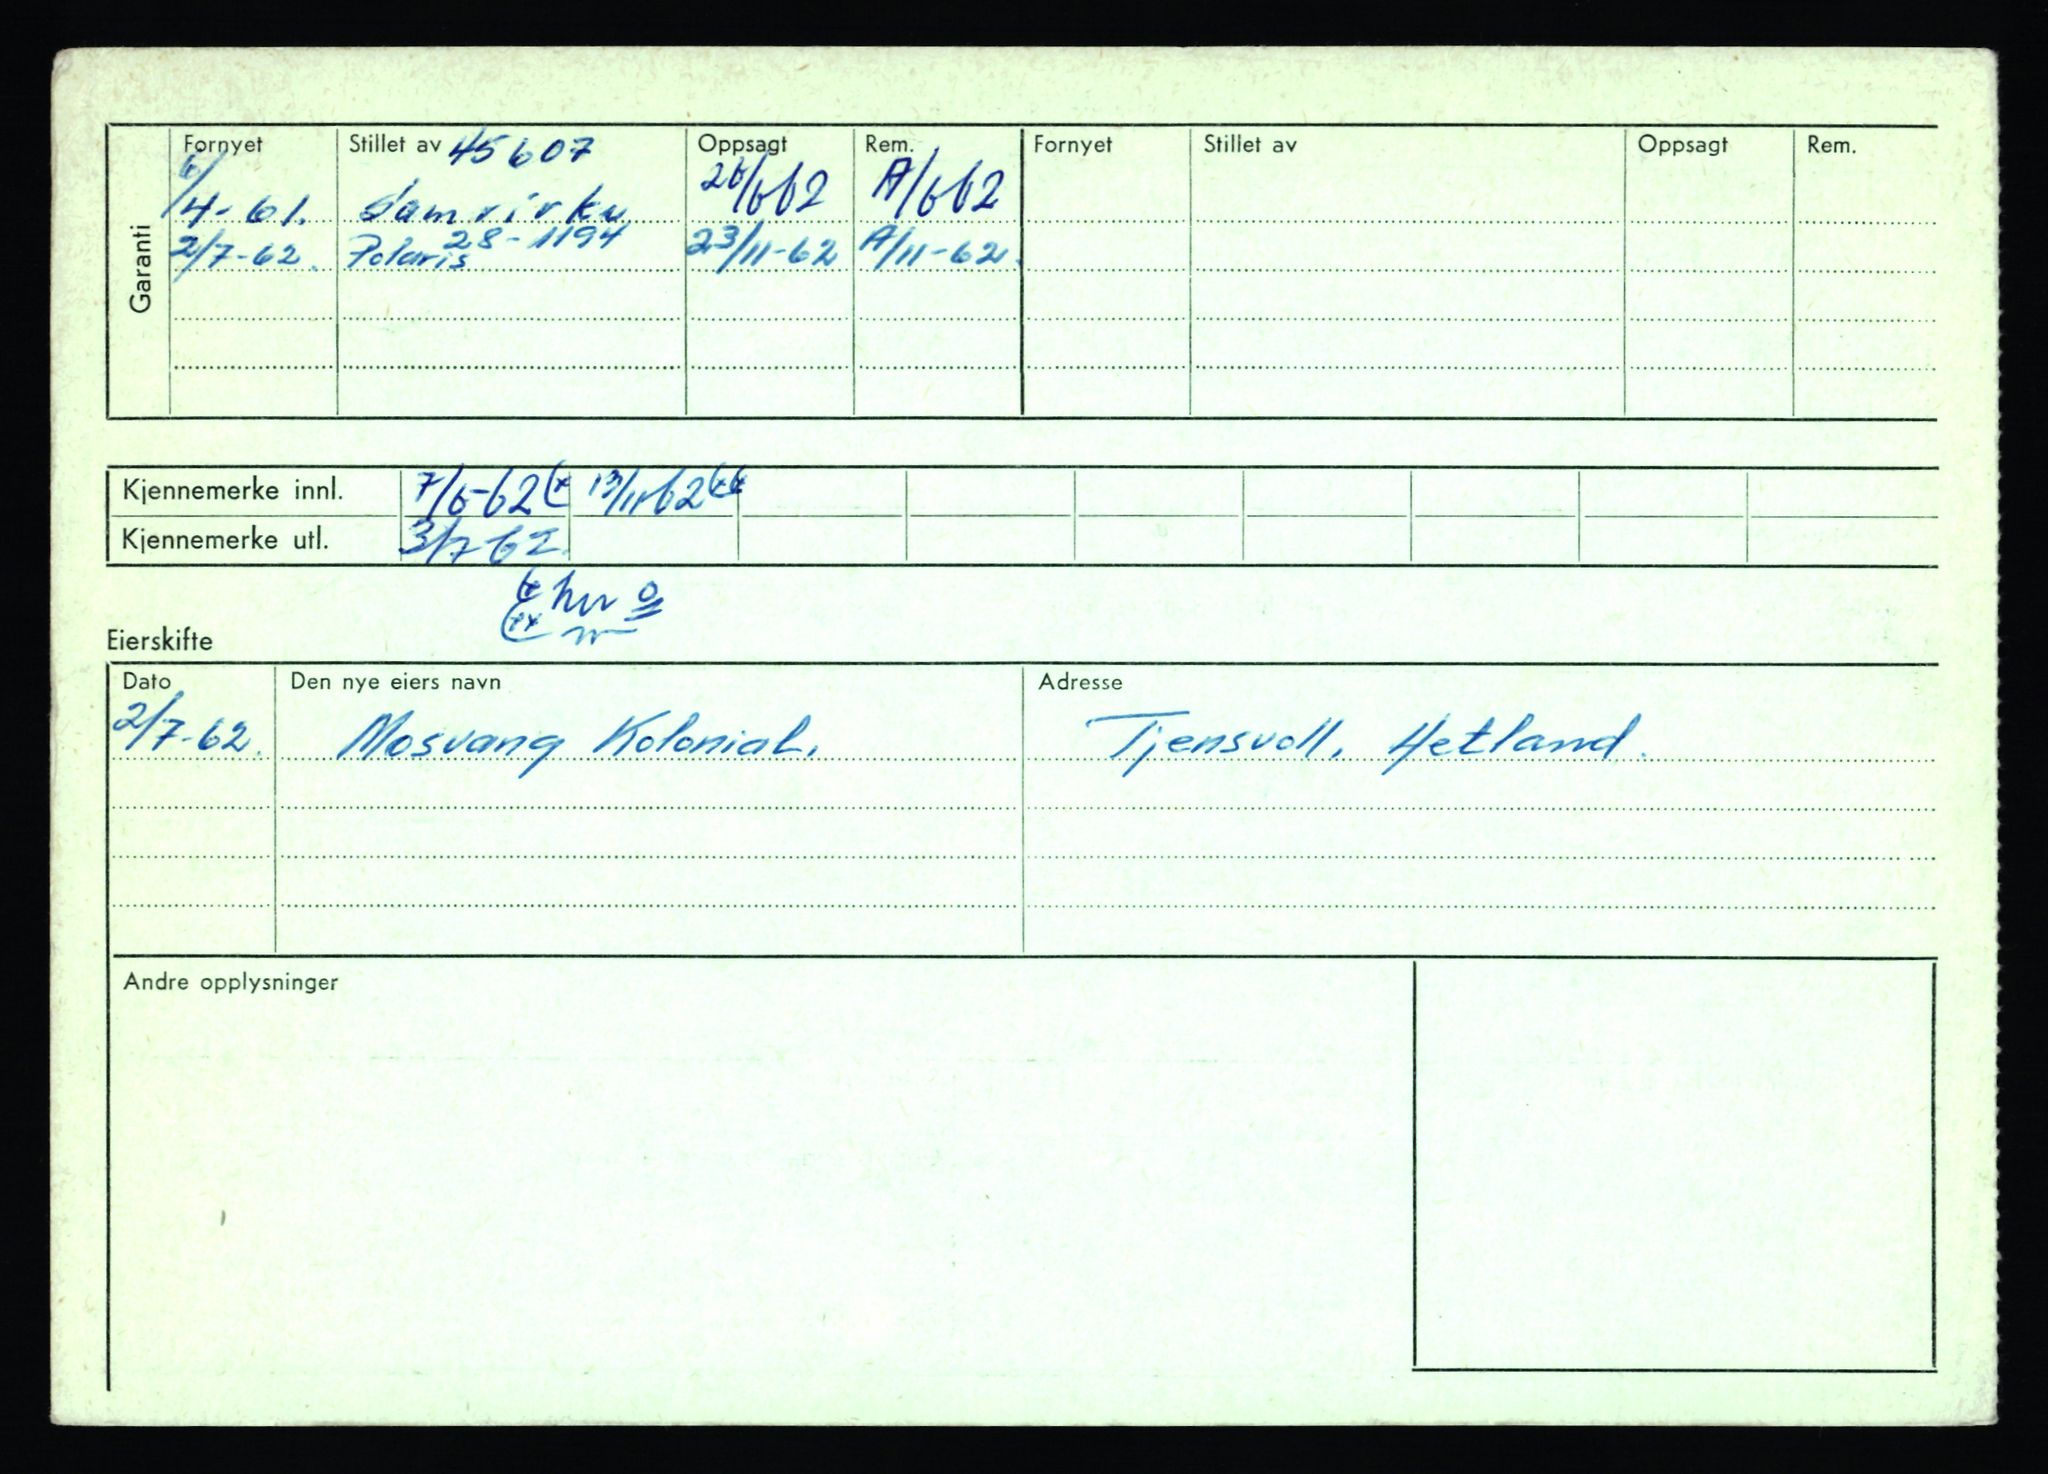 Garanti
Fornyet Stillet av 45607 Oppsagt Rem. Fornyet Stillet av Oppsagt Rem.
6/4-61. Samvirke 26/6 62 A/6 62
2/7-62. Polaris 28-1194 23/11-62 A/11-62.
Kjennemerke innl. 7/6-62 (x 13/11-62 (xx
Kjennemerke utl. 3/7-62.
(x
(xx
Eierskifte
Dato Den nye eiers navn Adresse
2/7-62. Mosvang Kolonial. Tjensvoll, Hetland.
Andre opplysninger